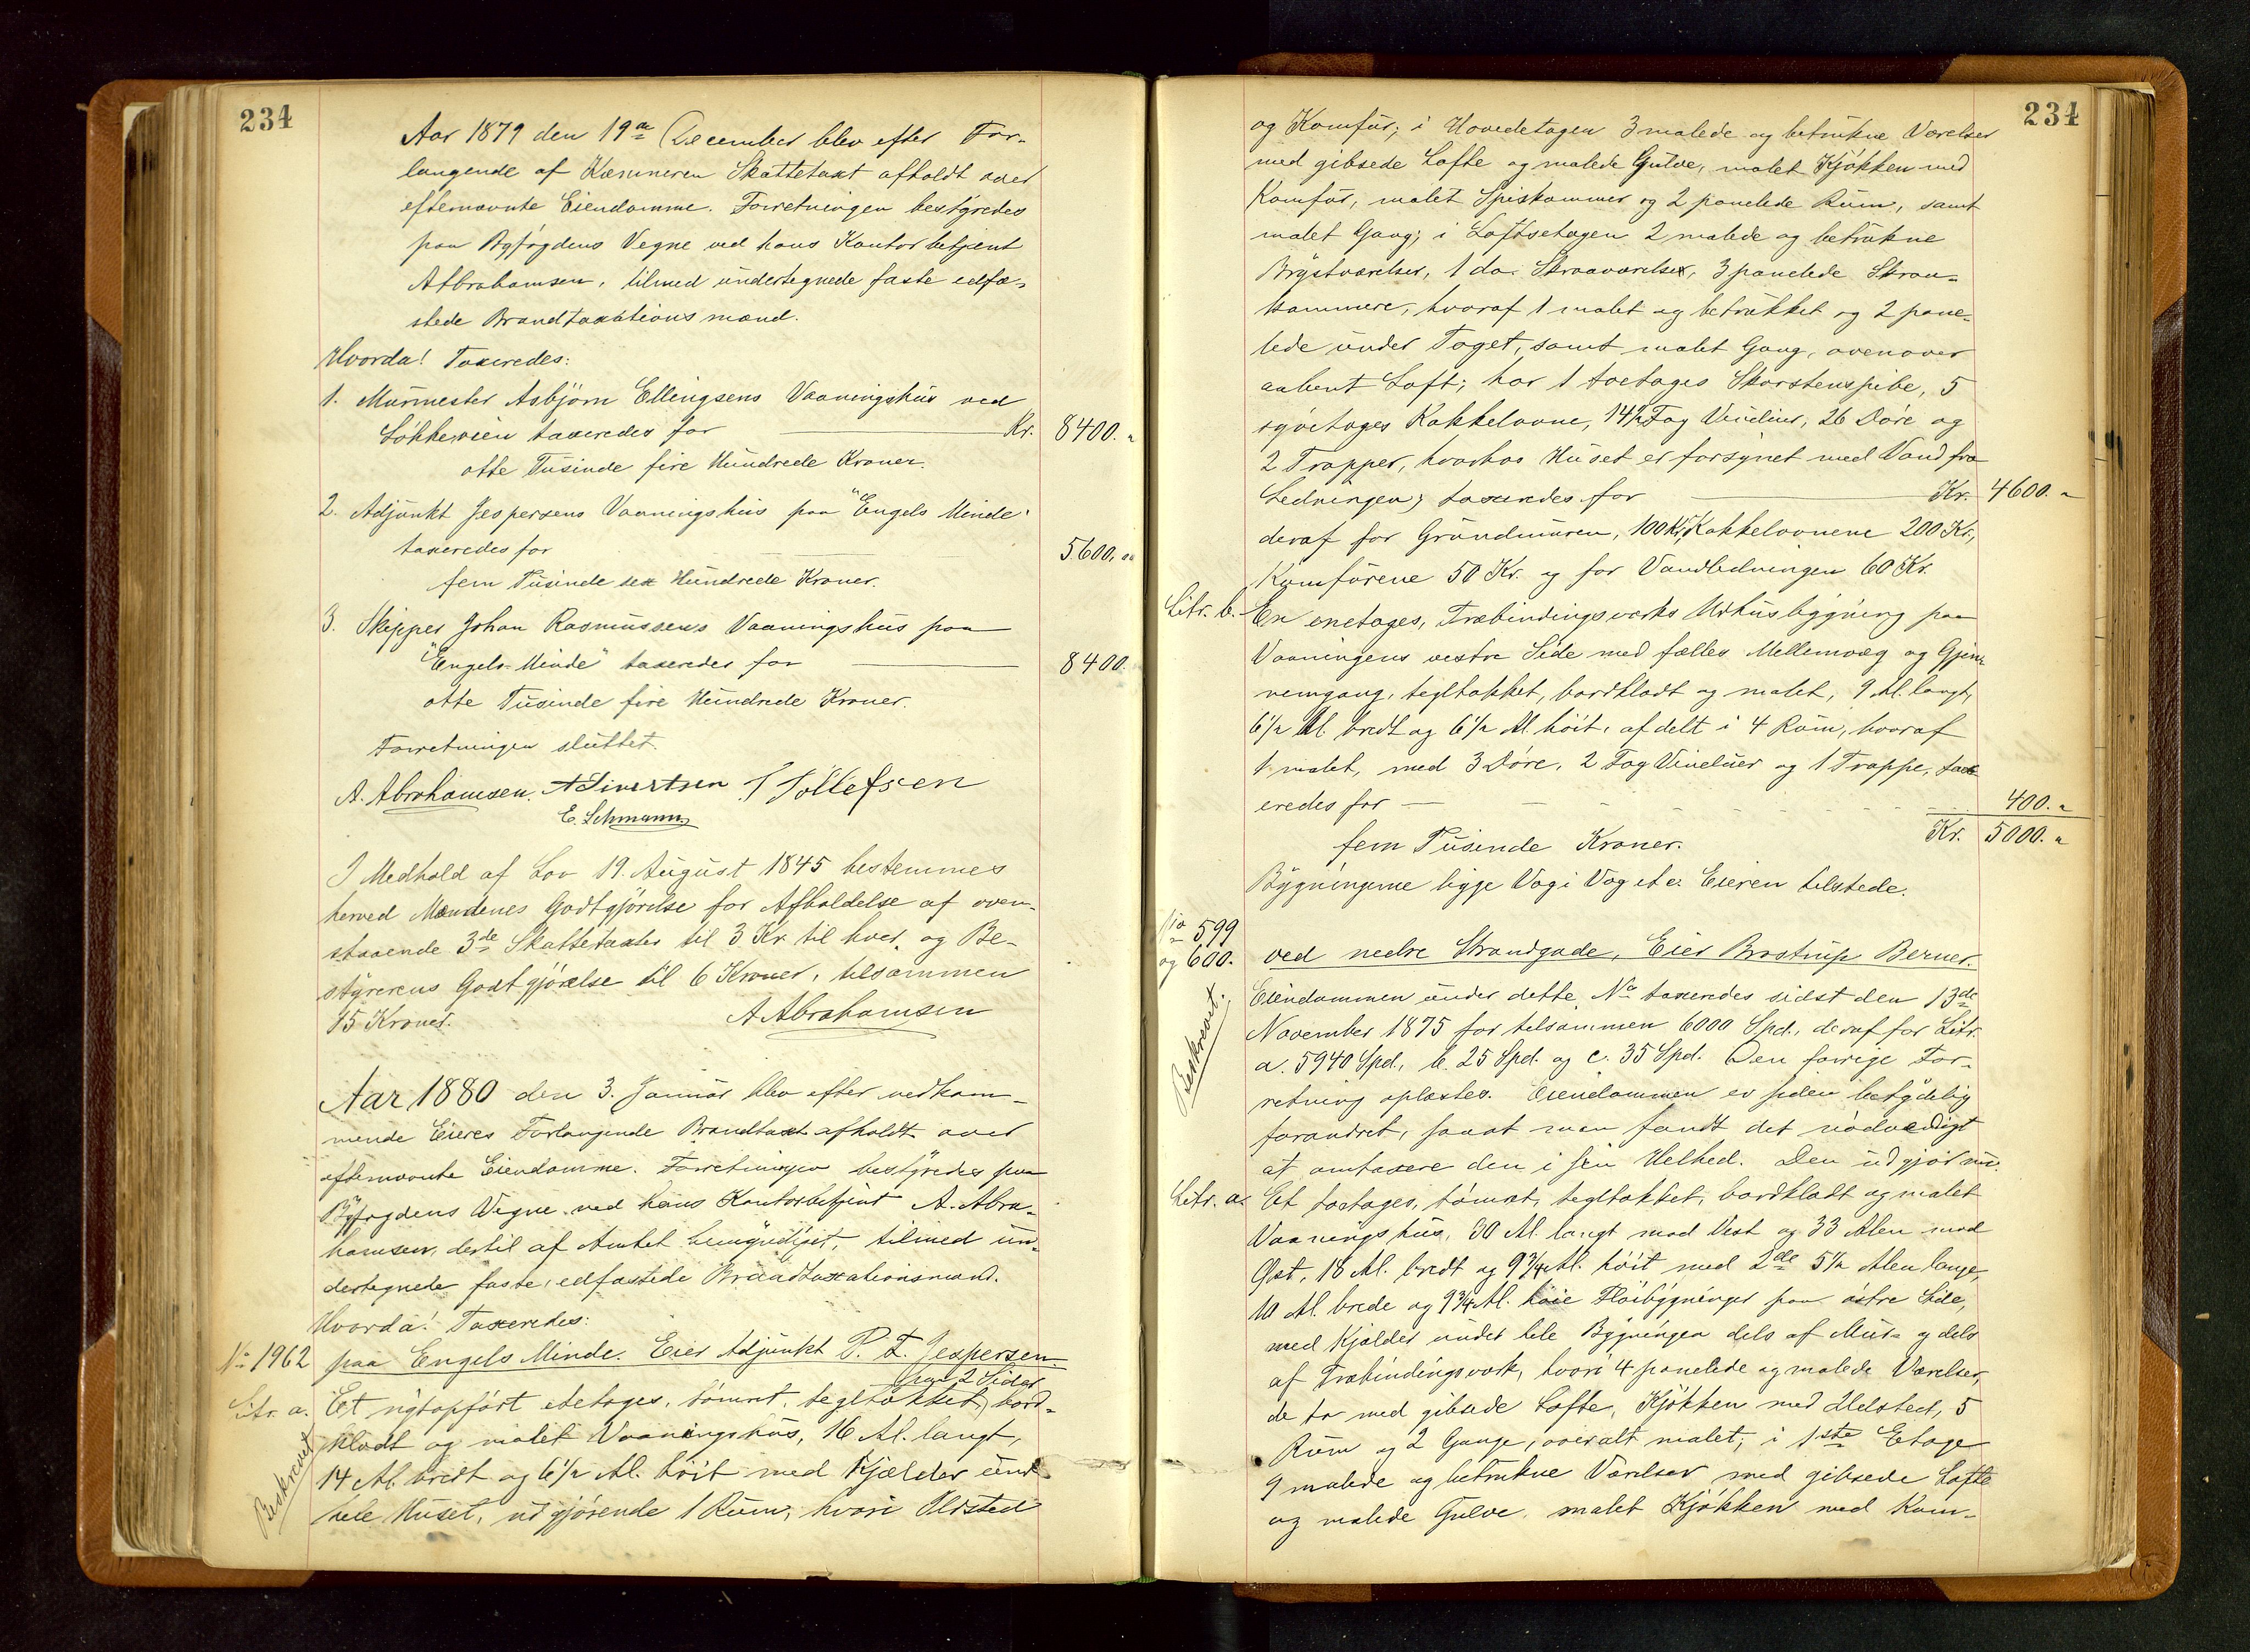 234
Aar 1879 den 19de December blev efter For-
langende af Kæmneren Skattetaxt afholdt over
efternævnte Eiendomme. Forretningen bestyredes
paa Byfogdens Vegne ved hans Kontorbetjent
A Abrahamsen, tilmed undertegnede faste edfæ-
stede Brandtaxationsmænd.
Hvorda! Taxeredes:
1. Murmester Asbjörn Ellingsens Vaaningshus ved
Løkkeveien taxeredes for Kr. 8400. "
otte Tusinde fire Hundrede Kroner.
2. Adjunkt Jespersens Vaaningshus paa "Engels Minde"
taxeredes for 5600. "
fem Tusinde sex Hundrede Kroner.
3. Skipper Johan Rasmussens Vaaningshus paa
"Engels-Minde" taxeredes for 8400.
otte Tusinde fire Hundrede Kroner.
Forretningen sluttet.
A. Abrahamsen. A Sivertsen T Tollefsen
E. Lehmann
I Medhold af Lov 19. August 1845 bestemmes
herved Mændenes Godtgjörelse for Afholdelse af oven-
staaende 3de Skattetaxter til 3 Kr til hver, og Be-
styrerens Godtgjörelse til 6 Kroner, tilsammen
15 Kroner.
A Abrahamsen
Aar 1880 den 3. Januar blev efter vedkom-
mende Eieres Forlangende Brandtaxt afholdt over
efternævnte Eiendomme. Forretningen bestyredes paa
Byfogdens Vegne ved hans Kontorbetjent A. Abra-
hamsen, dertil af Amtet bemyndiget, tilmed un-
dertegnede faste, edfæstede Brandtaxationsmænd.
Hvorda! Taxeredes:
No 1962 paa Engels Minde. Eier Adjunkt P. T. Jespersen.
paa 2 Sider
Litr. a. Et nyt opført etetages, tömret, tegltækket, bord-
Beskrevet
klædt og malet Vaaningshus, 16 Al. langt,
14 Al. bredt og 6 1/2 Al. höit med Kjælder under
hele Huset, udgjörende 1 Rum, hvori Ildsted
234
og Komfur; i Hovedetagen 3 malede og betrukne Værelser
med gibsede Lofte og malede Gulve, malet Kjökken med
Komfur, malet Spiskammer og 2 panelede Rum, samt
malet Gang; i Loftsetagen 2 malede og betrukne
Brystværelser, 1 do. Skraaværelse, 3 panelede Skraa-
kammere, hvoraf 1 malet og betrukket og 2 pane-
lede under Taget, samt malet Gang, ovenover
aabent Loft; har 1 toetages Skorstenspibe, 5
syvetages Kakkelovne, 14 1/2 Fag Vinduer, 26 Döre og
2 Trapper, hvorhos Huset er forsynet med Vand fra
Ledningen; taxeredes for Kr. 4600. "
deraf for Grundmuren, 100 Kr, Kakkelovnene 200 Kr,
Komfurene 50 Kr. og for Vandledningen 60 Kr.
Litr. b. En enetages, Træbindingsværks Udhusbygning paa
Vaaningens vestre Side med fælles Mellemvæg og Gjen-
nemgang, tegltækket, bordklædt og malet, 9 Al. langt,
6 1/2 Al. bredt og 6 1/2 Al. höit, afdelt i 4 Rum, hvoraf
1 malet, med 3 Döre, 2 Fag Vinduer og 1 Trappe, tax-
eredes for 400. "
fem Tusinde Kroner. Kr. 5000. "
Bygningerne ligge Væg i Væg etc. Eieren tilstede.
No 599
og 600. ved nedre Strandgade, Eier Brostrup Berner.
Eiendommen under dette No taxeredes sidst den 13de
Beskrevet.
November 1875 for tilsammen 6000 Spd., deraf for Litr.
a. 5940 Spd., b. 25 Spd. og c. 35 Spd. Den forrige For-
retning oplæstes. Eiendommen er siden betydelig
forandret, saaat man fandt det nödvendigt
at omtaxere den i sin Helhed. Den udgjör nu:
Litr. a. Et toetages, tömret, tegltækket, bordklædt og malet
Vaaningshus, 30 Al. langt mod Vest og 33 Alen mod
Öst, 18 Al. bredt og 9 3/4 Al. höit med 2de 5 1/2 Alen lange,
10 Al. brede og 9 3/4 Al. höie Flöibygninger paa östre Side,
med Kjælder under hele Bygningen dels af Mur- og dels
af Træbindingsværk, hvori 4 panelede og malede Værelser,
de to med gibsede Lofte, Kjökken med Ildsted, 5
Rum og 2 Gange, overalt malet; i 1ste Etage
9 malede og betrukne Værelser med gibsede Lofte
og malede Gulve, malet Kjökken med Kom-